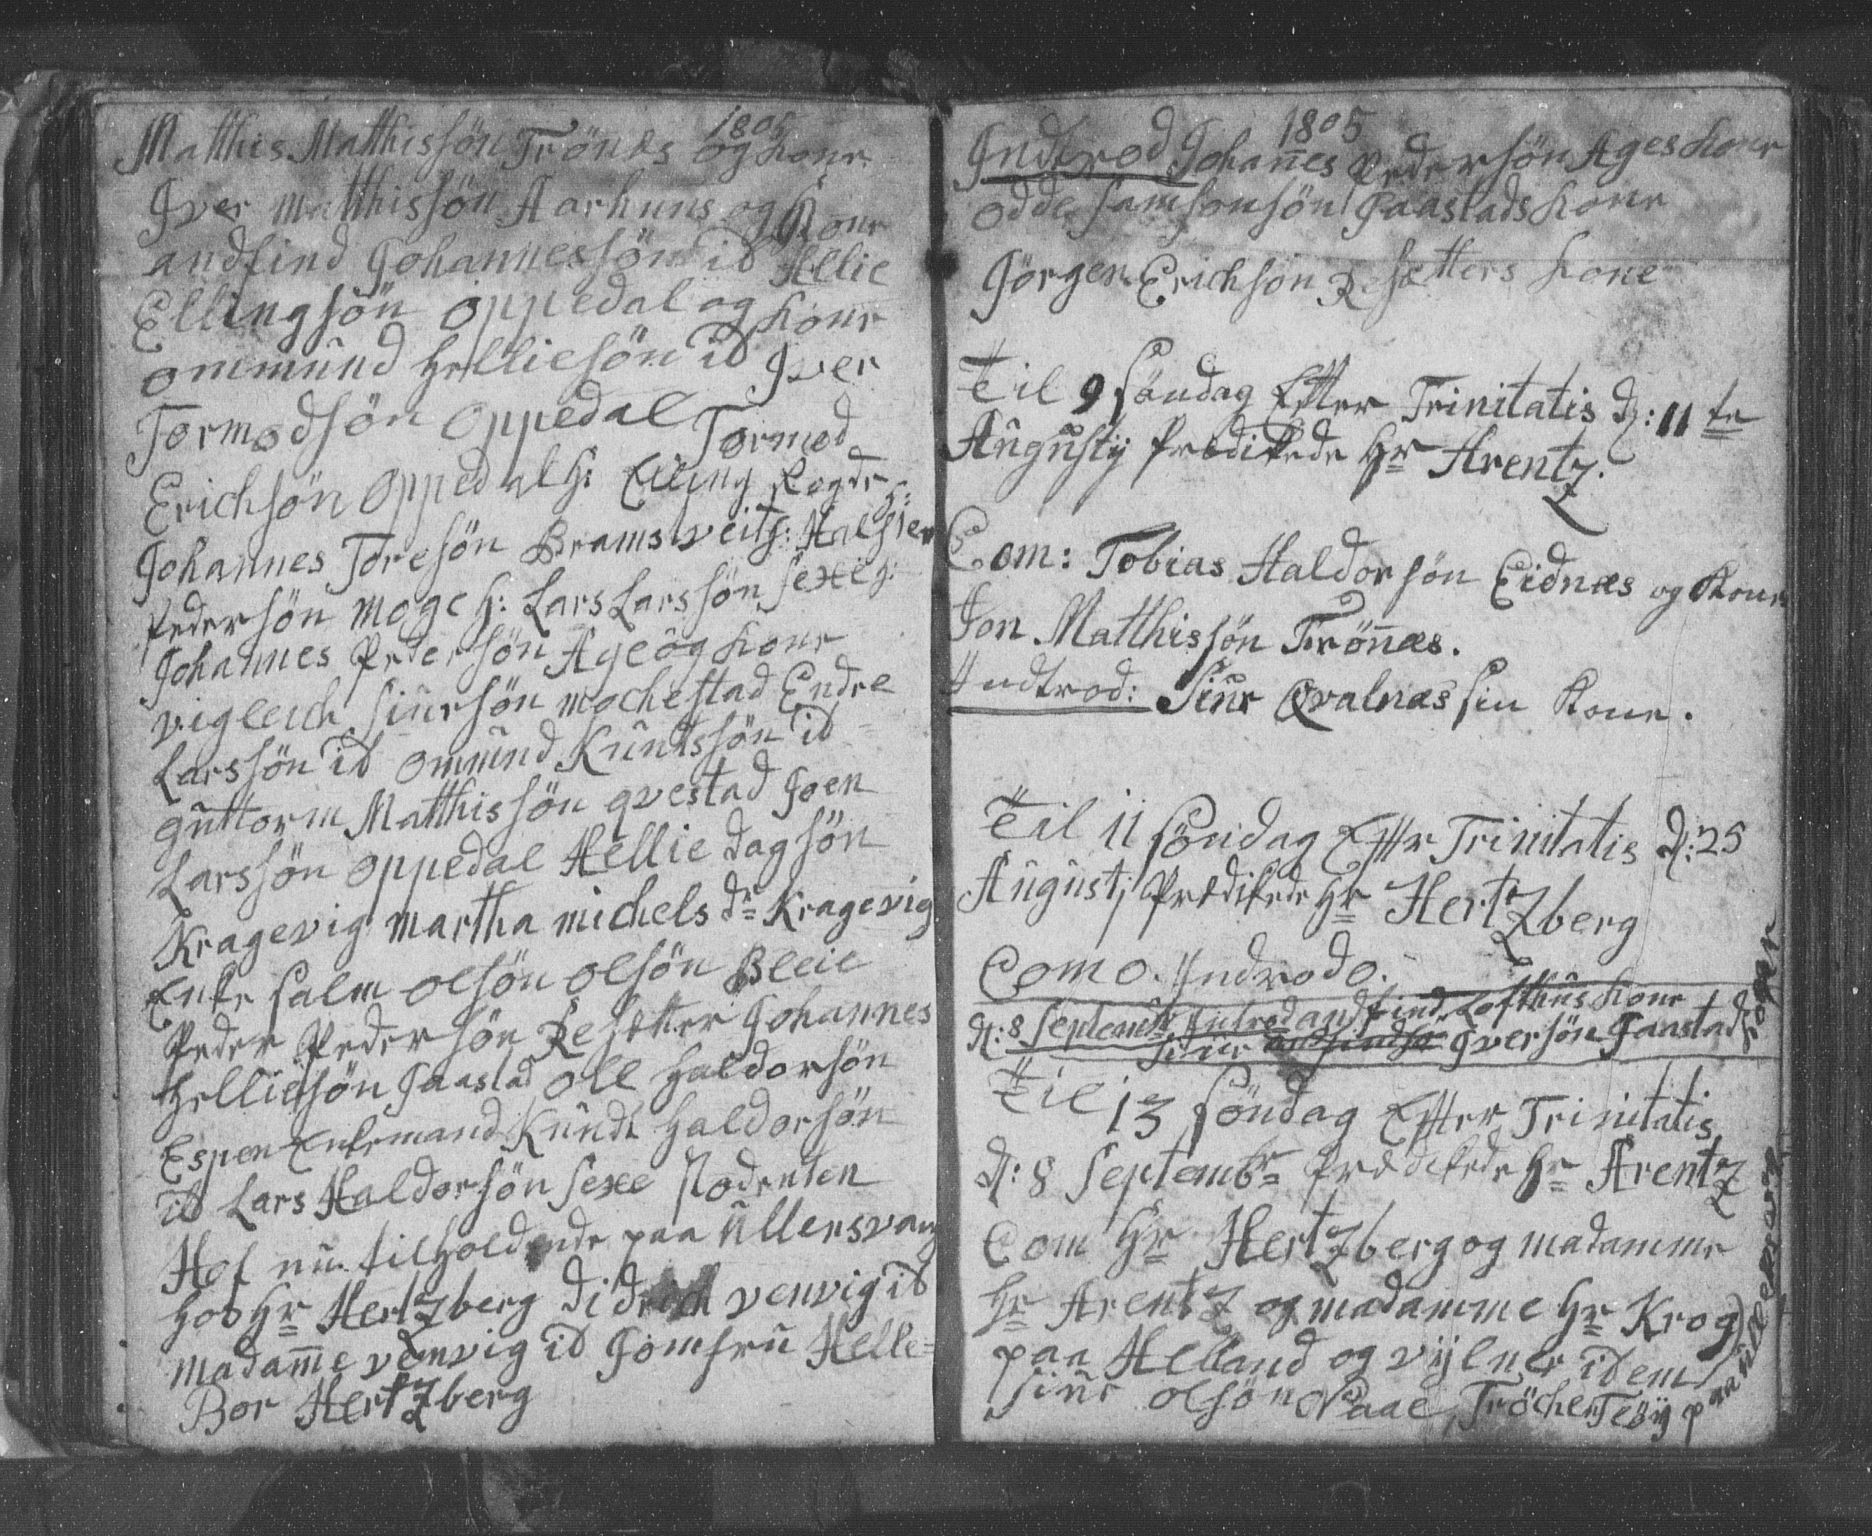 1805
Matthis Matthissön Trönes og Kone
Iver Matthissön Aarhuus og Kone
andfind Johannessön id Hellie
Ellingsön Oppedal og Kone
ommund Helliesön id Iver
Tormodsön Oppedal Tormod
Erichsön Oppedal h: Elling Regde h:
Johannes Toresön Bramstveit h: Halsten
Pedersön Moge h: Lars Larssön Sexe h:
Johannes Pedersön Age og Kone
vigleich Siursön Mochestad Endre
Larssön id Omund Knudtssön id
Guttorm Matthissön Qvestad Joen
Larssön Oppedal Hellie Dagsön
Kragevig Martha Michels dr Kragevig
Enke Salm Olsön Olsön Bleie
Peder Pedersön Resetter Johannes
Helliesön Jaastad Ole Haldorsön
Espen Enkemand Knudt Haldorsön
id Lars Haldorsön Sexe Stodenten
Hof nu tilholdende paa Ullersvang
hos Hr Hertzberg Didrich Venvig id
Madamme Venvig id Jomfru Helle=
Bor Hertzberg
1805
Indtrod Johannes Pedersön Ages Kone
odde Samsonsön Jaastads Kone
Jörgen Erichsön Resetters Kone
Til 9 Söndag Efter Trinitatis d: 11te
Augusty Predikede Hr Arentz.
Com: Tobias Haldorsön Eidnæs og Kone
Jon Matthissön Trönnæs.
Indtrod: Siur Qvalnæs sin Kone.
Til 11 Söndag Effter Trinitatis d: 25
Augusti Predikede Hr Hertzberg
Com 0. Indrod 0.
d: 8 Septembr Introd andfind Lofthus Kone
Siur Iversön Jaastads
Kone
Til 13 Söndag Effter Trinitatis
d: 8 Septembr Predikede Hr Arentz
Com Hr Hertzberg og Madamme
Hr Arentz og Madamme Hr Krog
paa Helland og idem
Siur Olsön Naae Teöy paa
Ullensvang